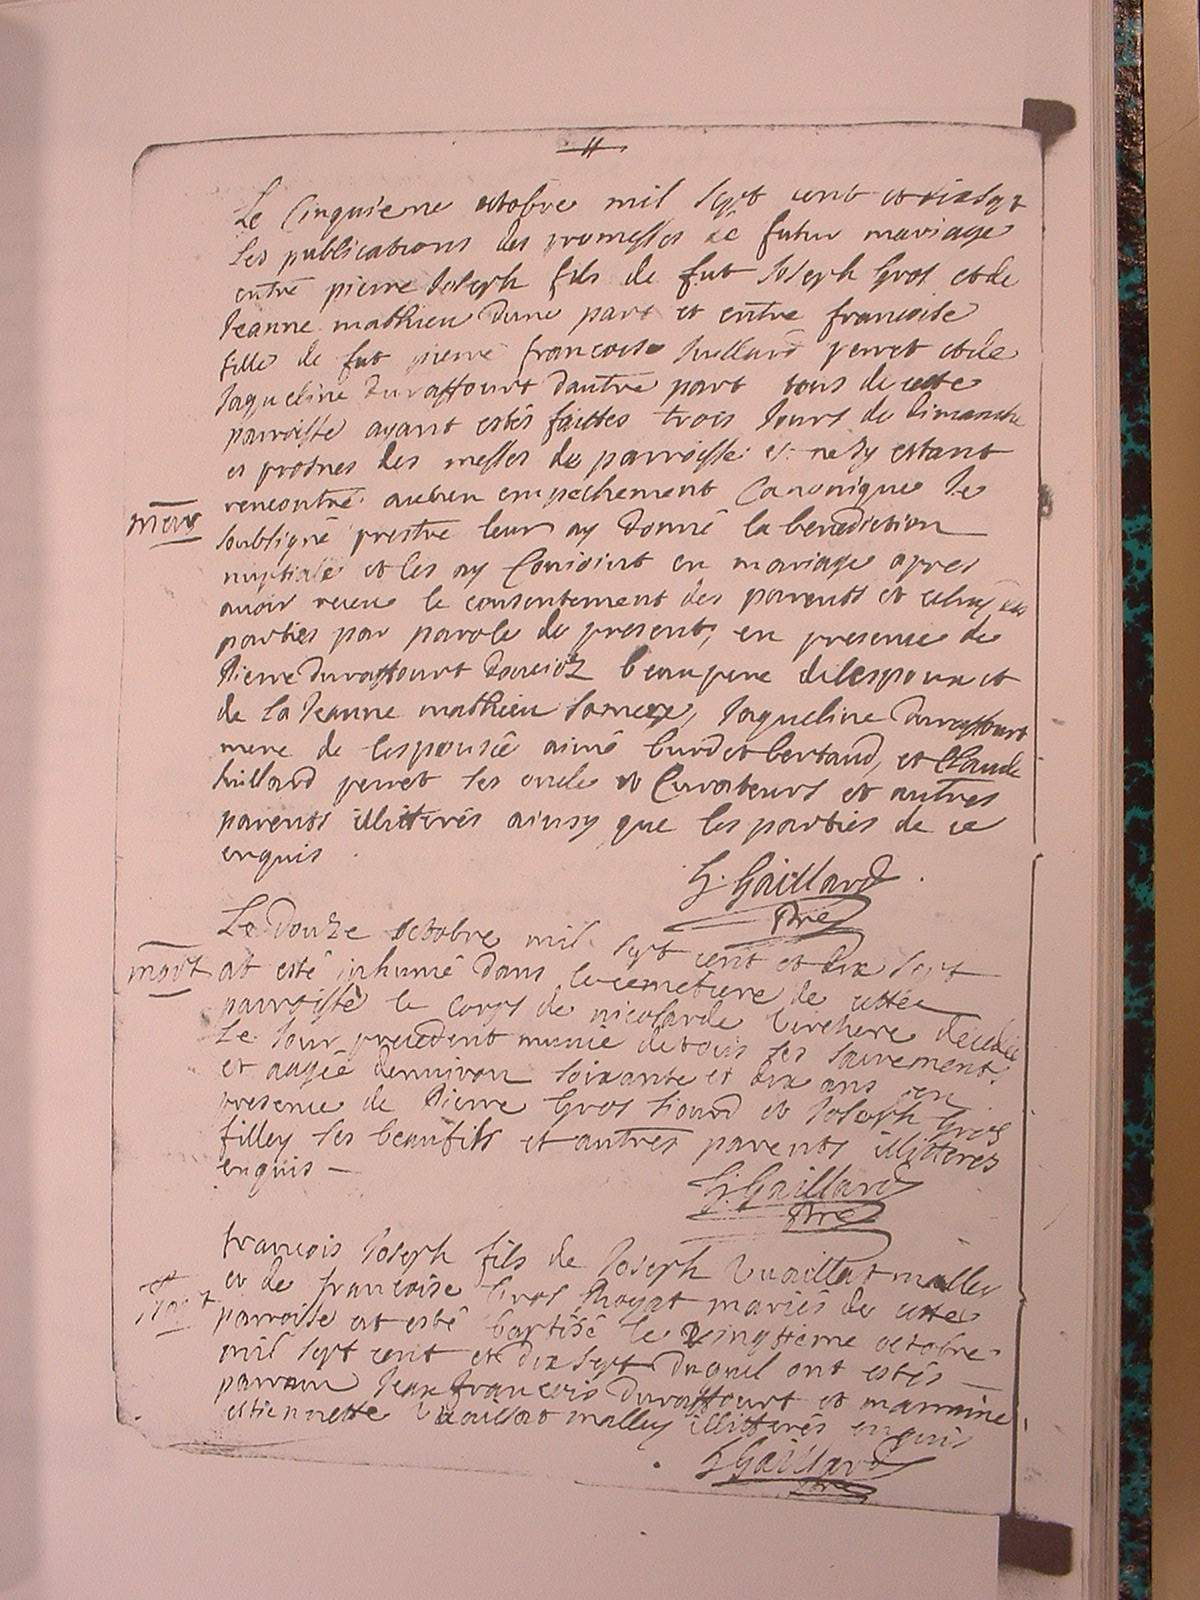 Le cinquieme octobre mil sept cent et dixsept
les publications des promesses de futur mariage
entre pierre Joseph fils de fut Joseph Gros et de
Jeanne mathieu dune part et entre francoise
fille de fut pierre francois Juillard perret et de
Jaqueline Duraffourt dautre part tous de cette
parroisse ayant estés faittes trois Jours de dimanche
es prosnes des messes de parroisse et ne sy estant
rencontré aucun empechement Canonique Je
mary
soubsigné prestre leur ay donné la benediction
nuptiale et les ay Conioint en mariage apres
avoir receu le consentement des parents et celuy des
parties par parole de present, en presence de
Pierre Duraffourt beaupere de lespoux et
de la Jeanne mathieu sa mere, Jaqueline Duraffourt
mere de lespousée aimé burdet bertand, et Claude
Juillard perret ses oncle et Curateurs et autres
parents illitterés ainsy que les parties de ce
enquis
G. Gaillard
ptre
Le douze octobre mil sept cent et dix sept
mort
at esté inhumé dans le cemetiere de cette
parroisse le corps de nicolarde decedée
Le Jour precedent munie de tous ses sacrements
et aagée denviron soixante et dix ans en
presence de Pierre Gros et Joseph Gros
filley ses beaufils et autres parents illitteres
enquis
G. Gaillard
ptre
francois Joseph fils de Joseph Vuaillat malley
et de francoise Gros mariés de cette
parroise at esté baptisé le Vingtieme octobre
mil sept cent et dix sept duquel ont estés
parrain Jean francois Duraffourt et marraine
estiennette Vuaillat malley illitterés enquis
G Gaillard
ptre